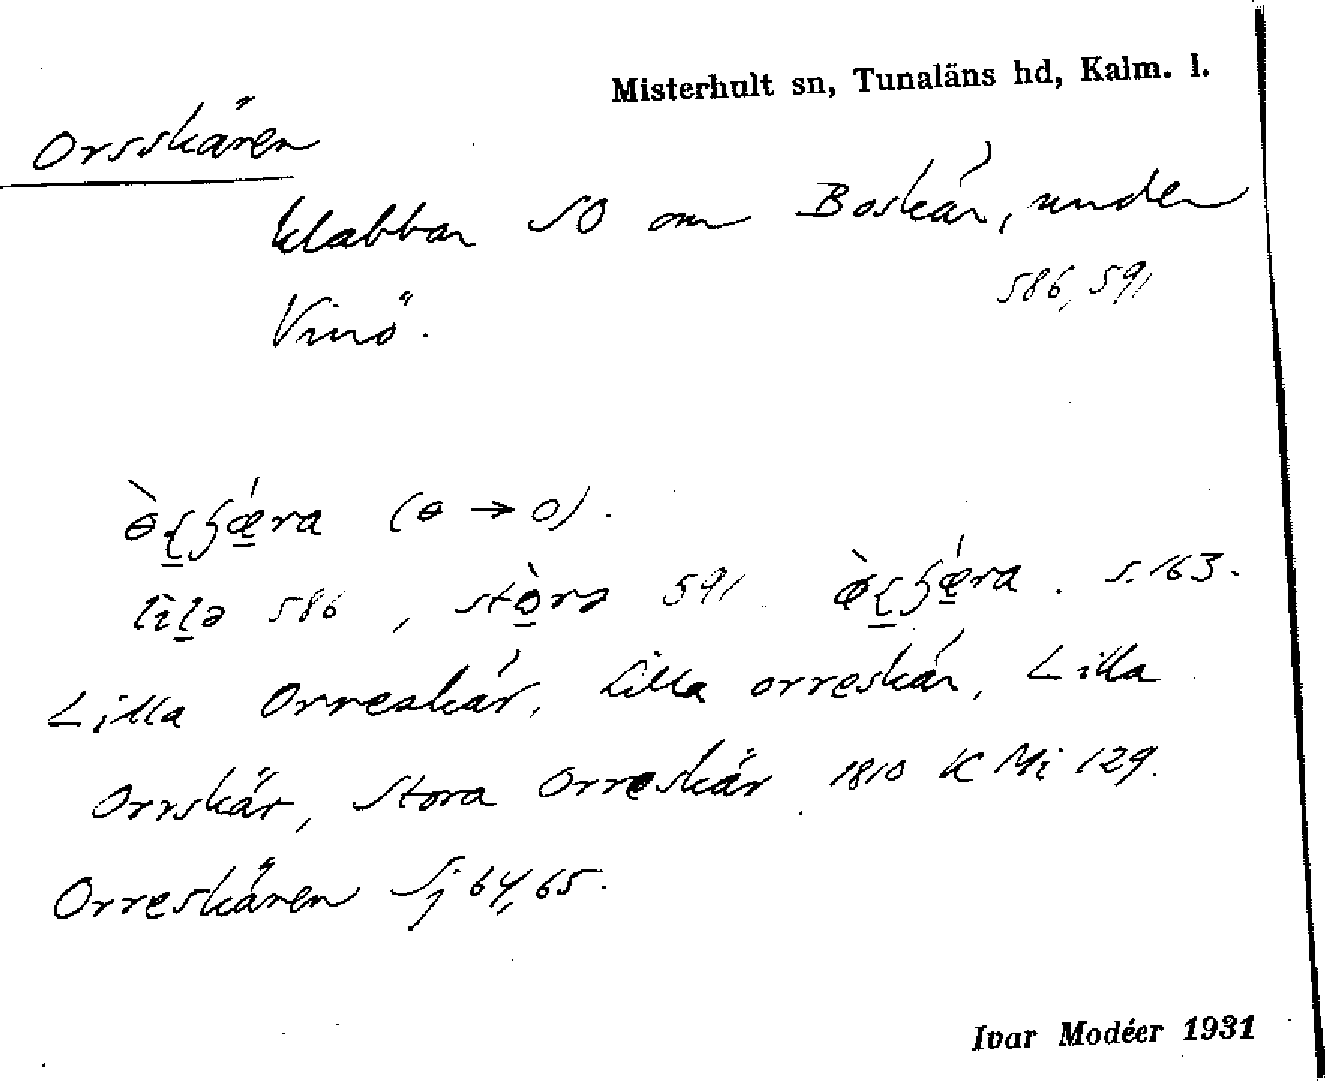 Misterhult sn, Tunaläns hd, Kalm. l.
Orsskären
klabbar SO om Boskär, under
Vinö. 586, 591
lilə 586, stòrə 591 s. 163.
Lilla Orreskär, Lilla orreskär, Lilla
Orrskär, Stora Orreskär 1810 K Mi 129.
Orreskären Sj 64, 65.
Ivar Modéer 1931